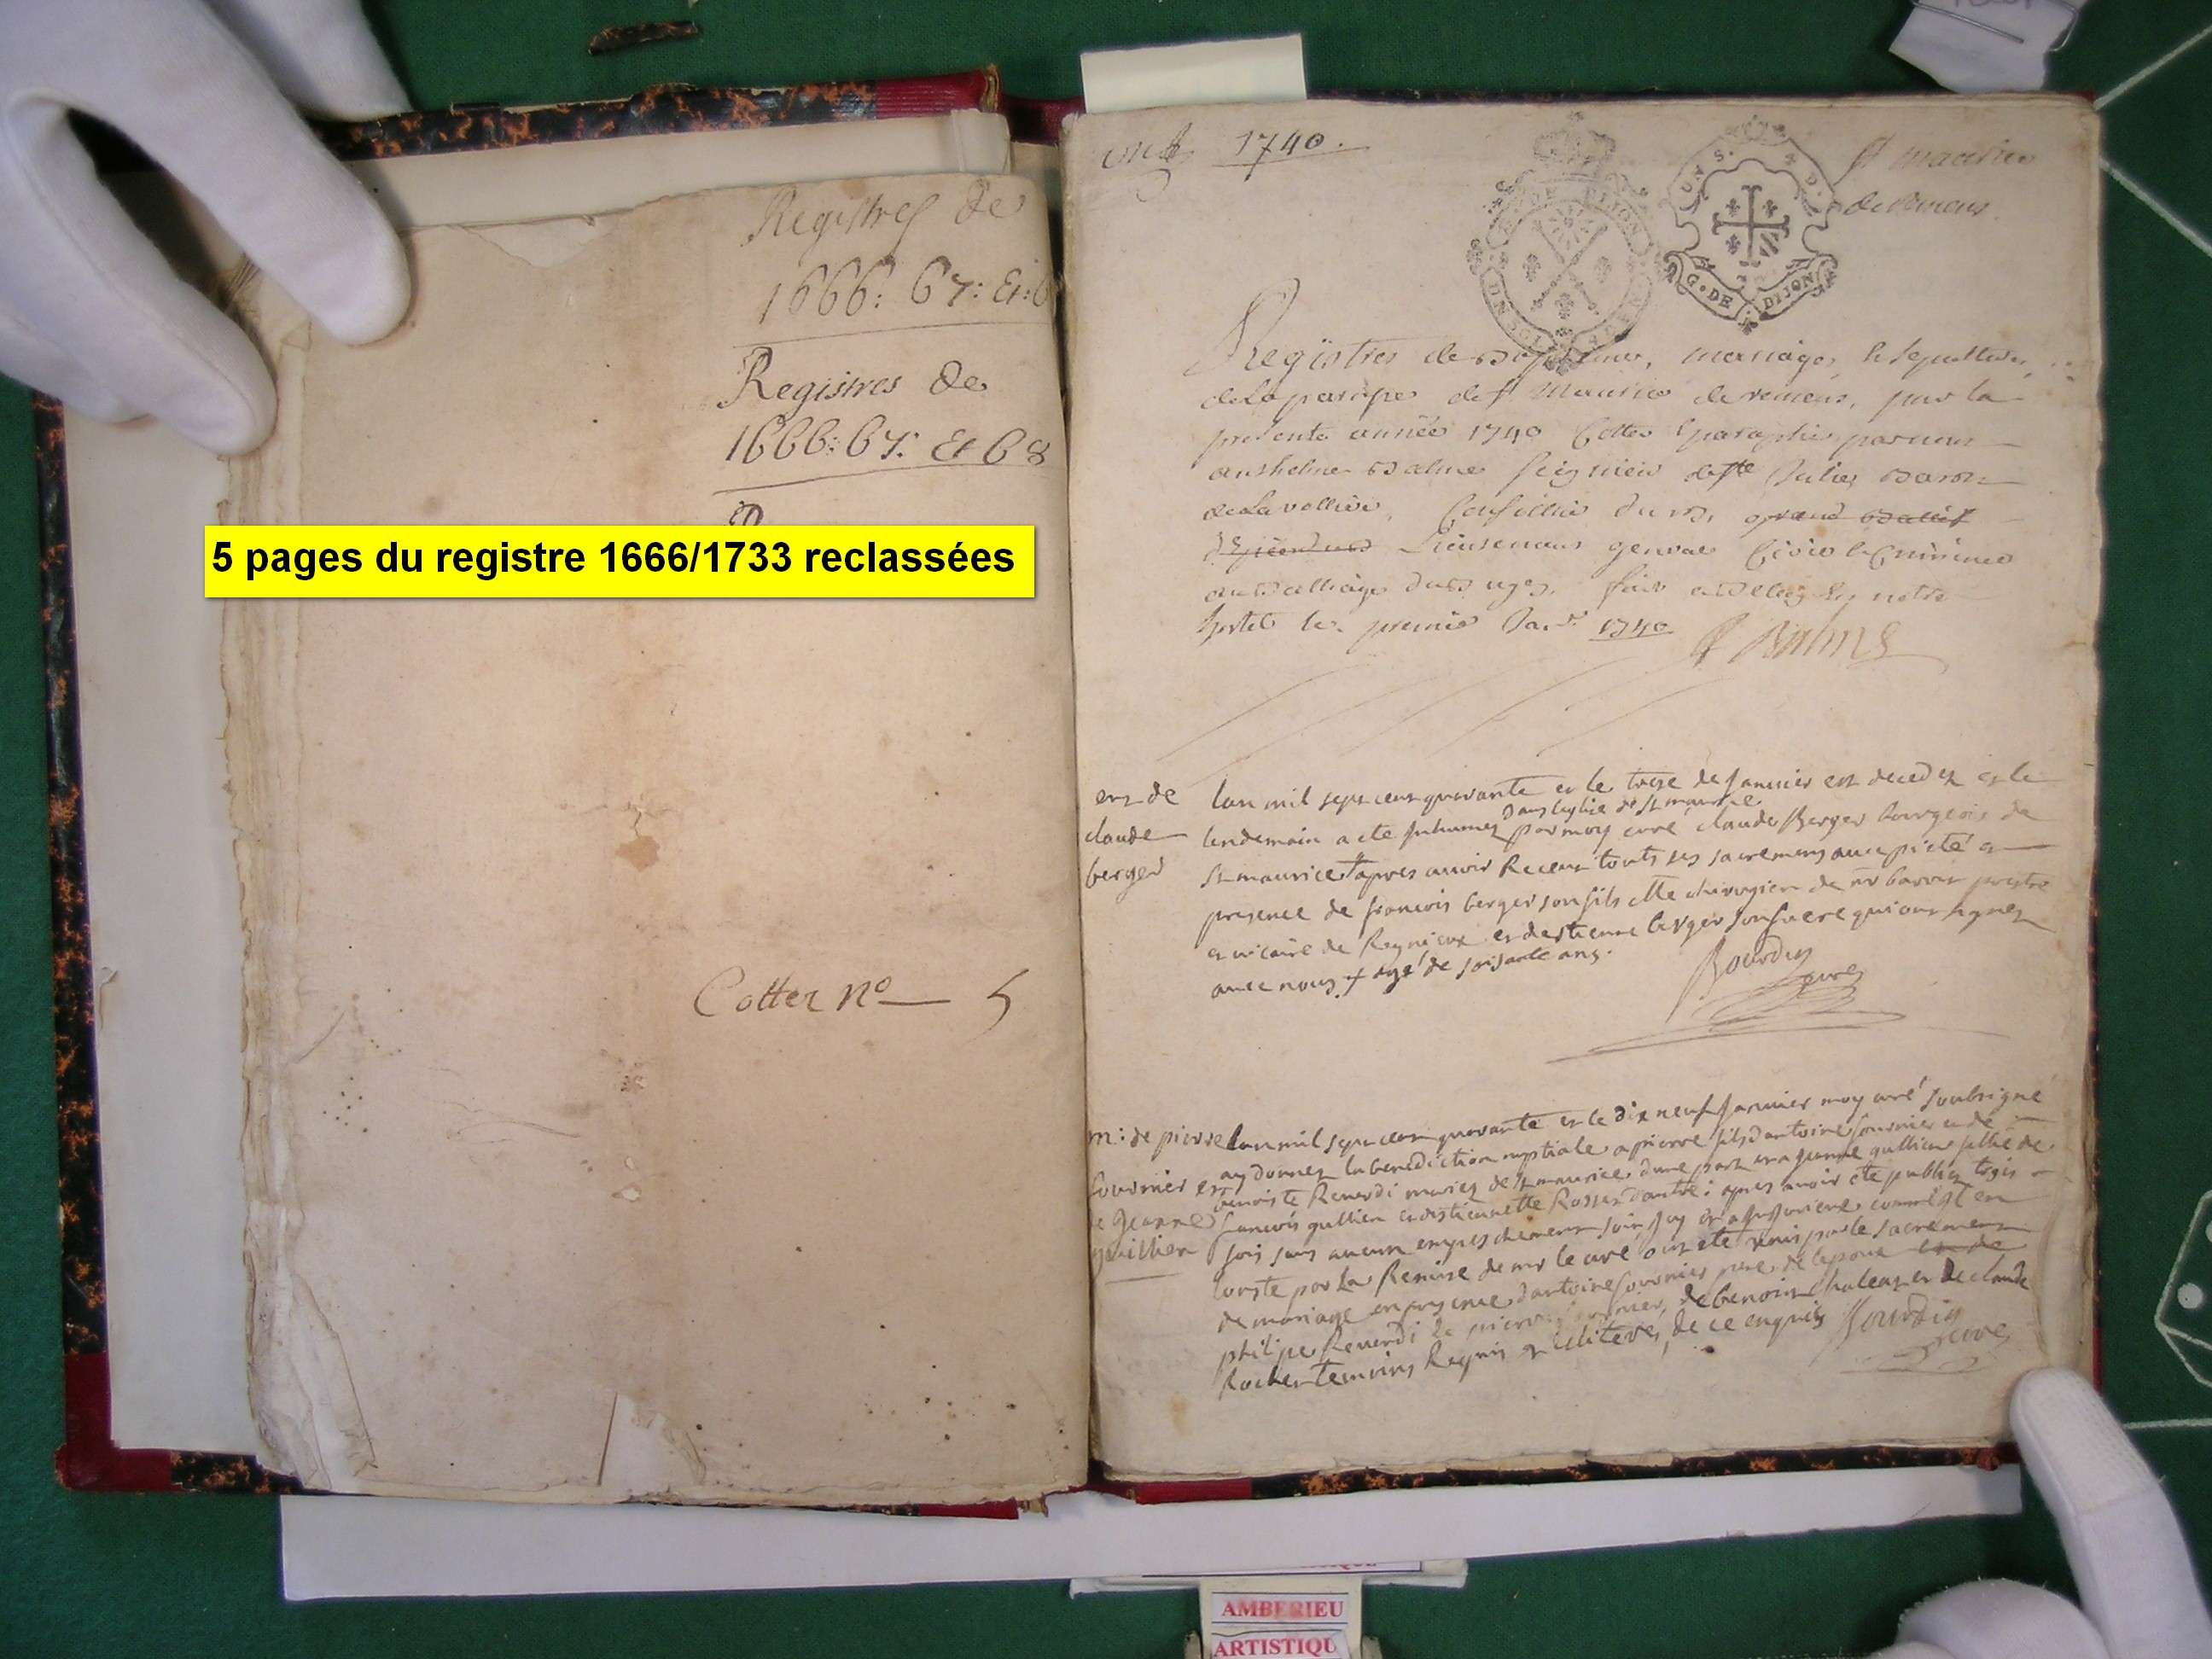 Registres de
1666: 67: Et: 6
Registres de
1666: 67: Et 68
R
5 pages du registre 1666/1733 reclassées
Cotter n° 5
1740.
St maurice
de Remens
G. DE DIJON
Registres de Baptemes, mariages, et sepultures,
de la paroisse de St Maurice de remens, pour la
presente année 1740 Cottés et paraphés par nous
anthelme Balme seigneur de Ste Julie, Baron
de la velliere, Conseiller du roy, grand Bailif
Lieutenant general Civil et Criminel
au Balliage du Bugey, fait a Belley en notre
hotel le premier Janr. 1740
Balme
ent de
claude
berger
lan mil sept cent quarante et le treze de Janvier est decedez et le
dans leglise de st maurice
lendemain a ete Inhumez par moy curé claude Berger bourgeois de
st maurice apres avoir Receut touts ses sacremens avec pieté en
presence de francois berger son fils chirurgien de mr prestre
et vicaire de Reynieux et destienne berger son frere qui ont signez
avec nous + agé de soisante ans.
Bourdin
curé
m: de pierre
fournier et
de Jeanne
guillien
lan mil sept cent quarante et le dix neuf Janvier moy curé soubsigné
ay donnez la benediction nuptiale a pierre fils dantoine fournier et de
benoiste Reverdi mariez de st maurice dune part et a Jeanne guillien fillie de
francois guillien et destiennette Rosset dautre: apres avoir ete publiez trois
fois sans aucun empeschement soit Icy et a comme Il en
conste par la Remise de mr le curé ont ete unis par le sacrement
de mariage en presence dantoine fournier pere de lepoux et de
philipe Reverdi de pierre fournier, de benoist chaleat et de claude
Rochet temoins Requis et Illiterés, de ce enquis
Bourdin
curé
AMBERIEU
ARTISTIQU